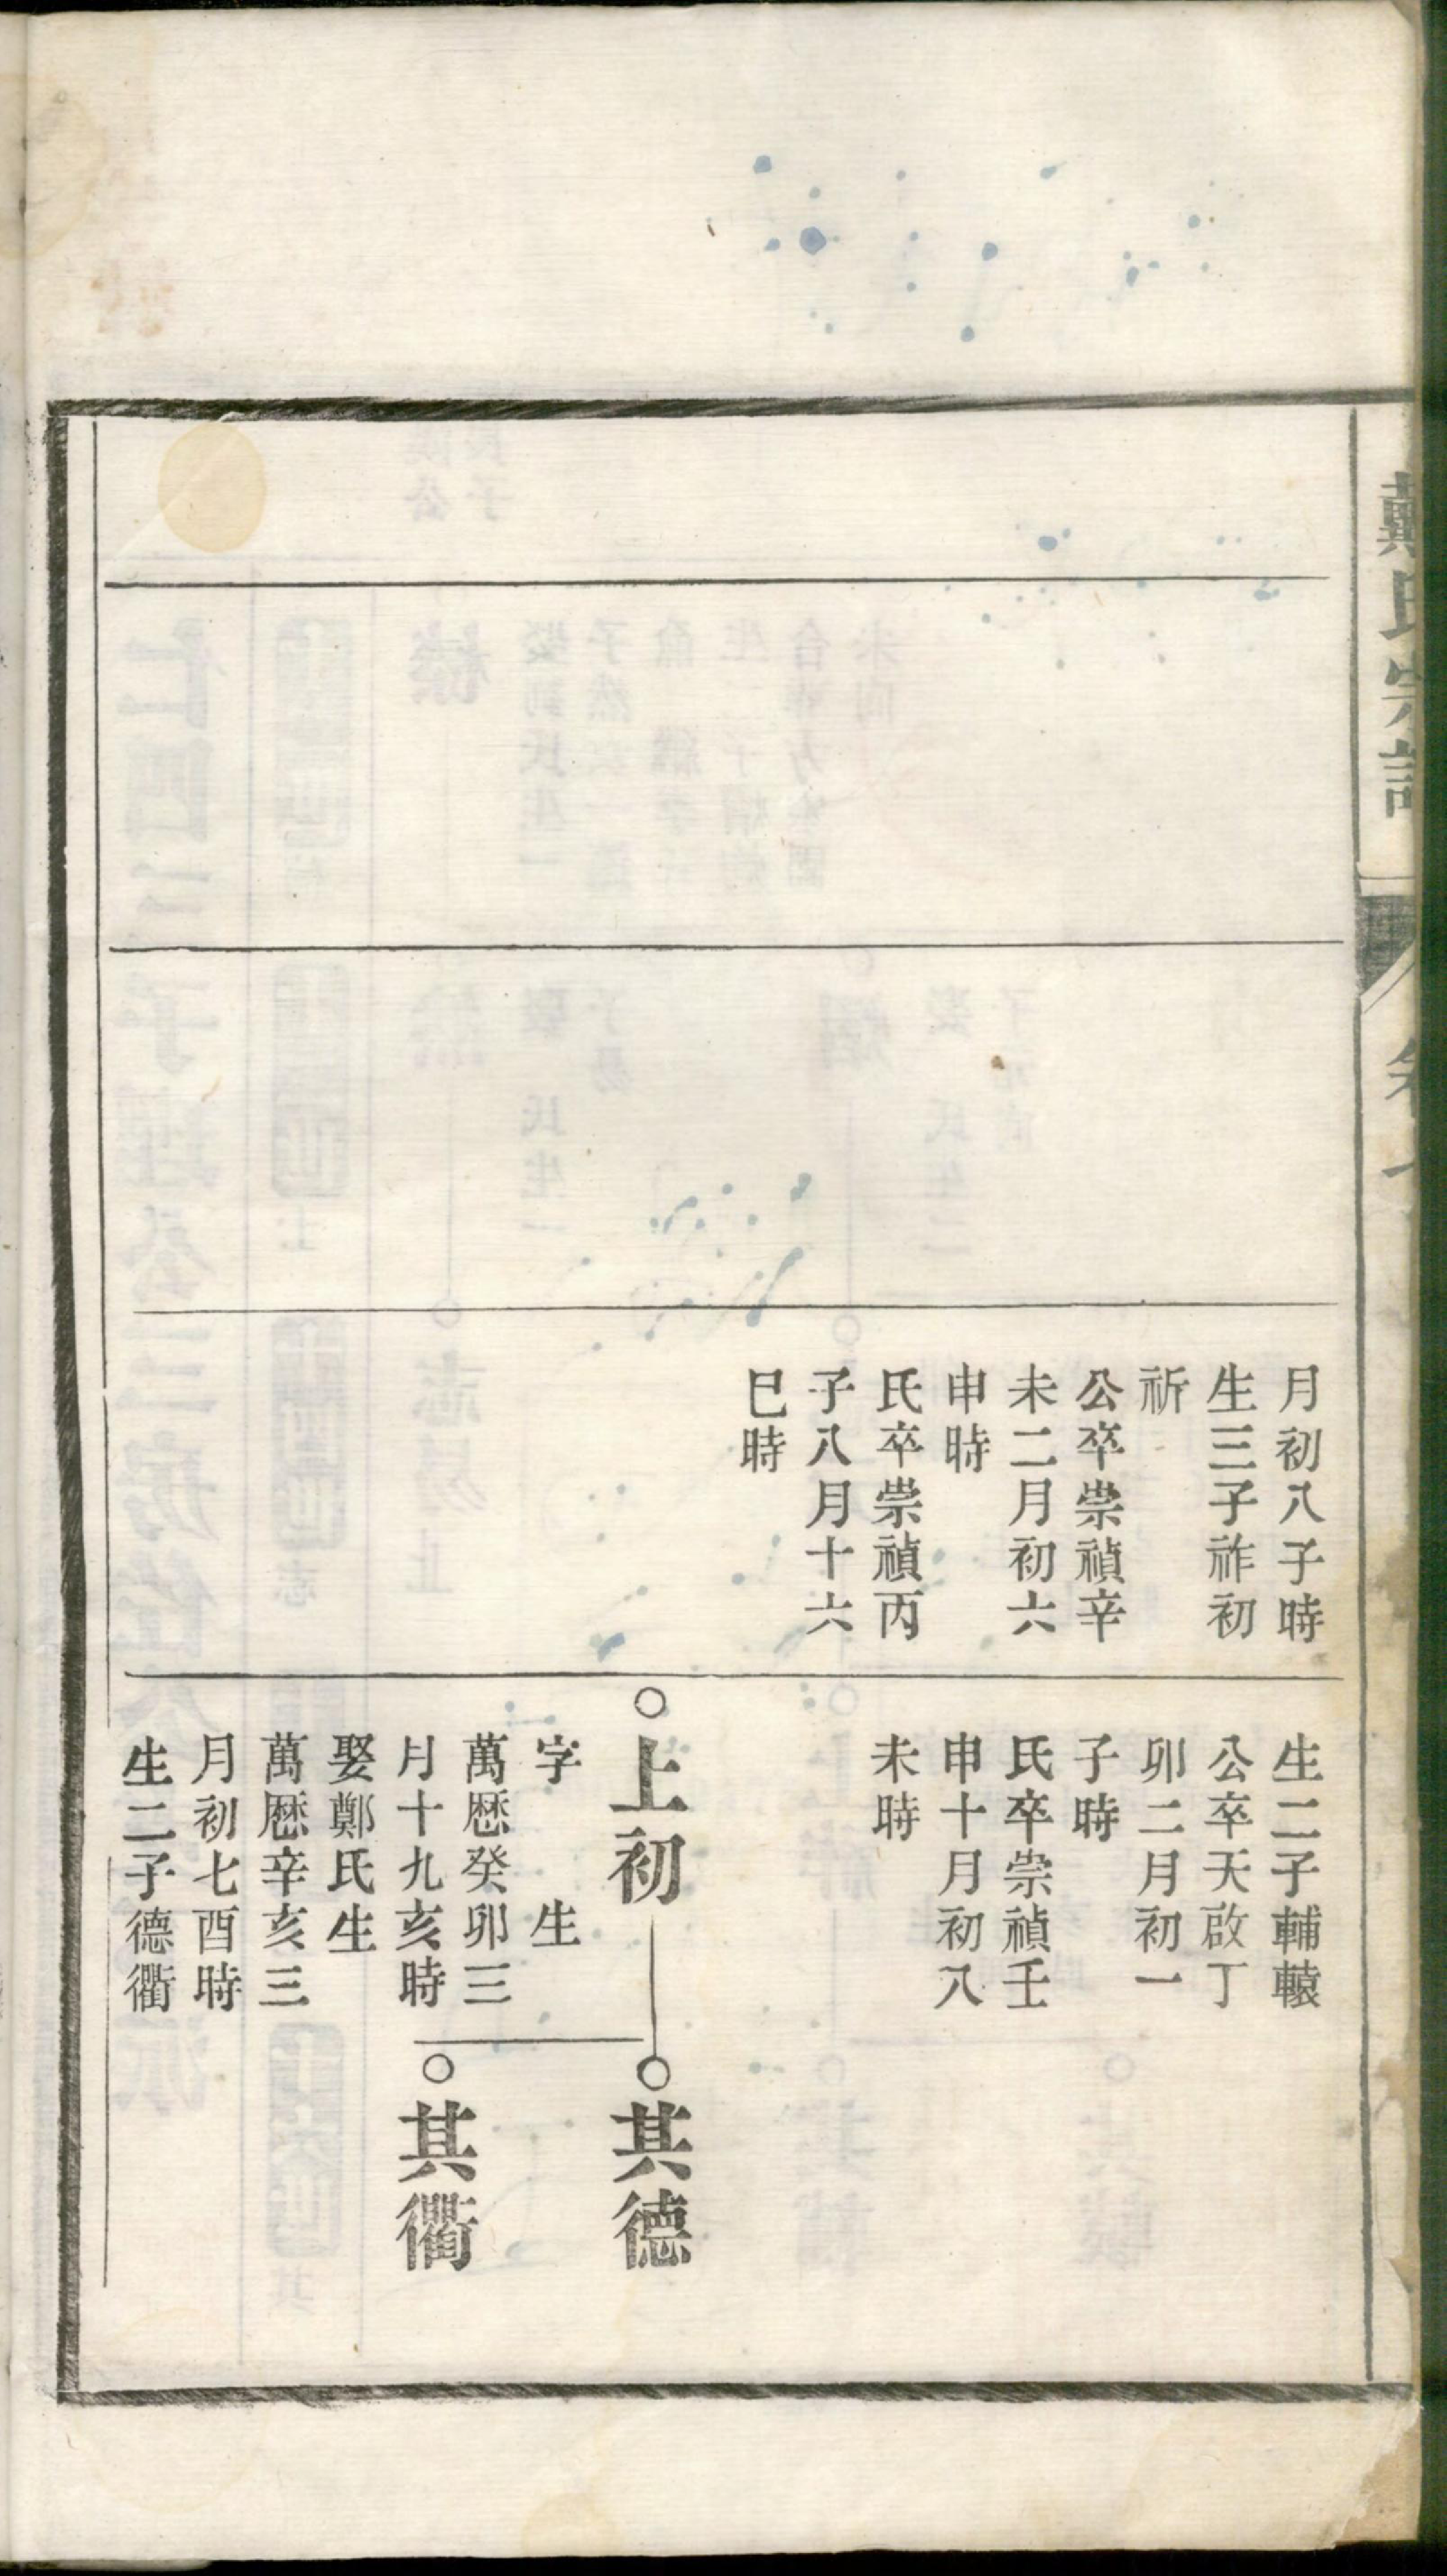 戴氏宗譜
卷
月初八子時
生三子祚初
祈
公卒崇禎辛
未二月初六
申時
氏卒崇禎丙
子八月十六
巳時
生二子輔轅
公卒天啟丁
卯二月初一
子時
氏卒崇禎壬
申十月初八
未時
上初
字 生
萬歷癸卯三
月十九亥時
娶鄭氏生
萬歷辛亥三
月初七酉時
生二子德衢
其德
其衢